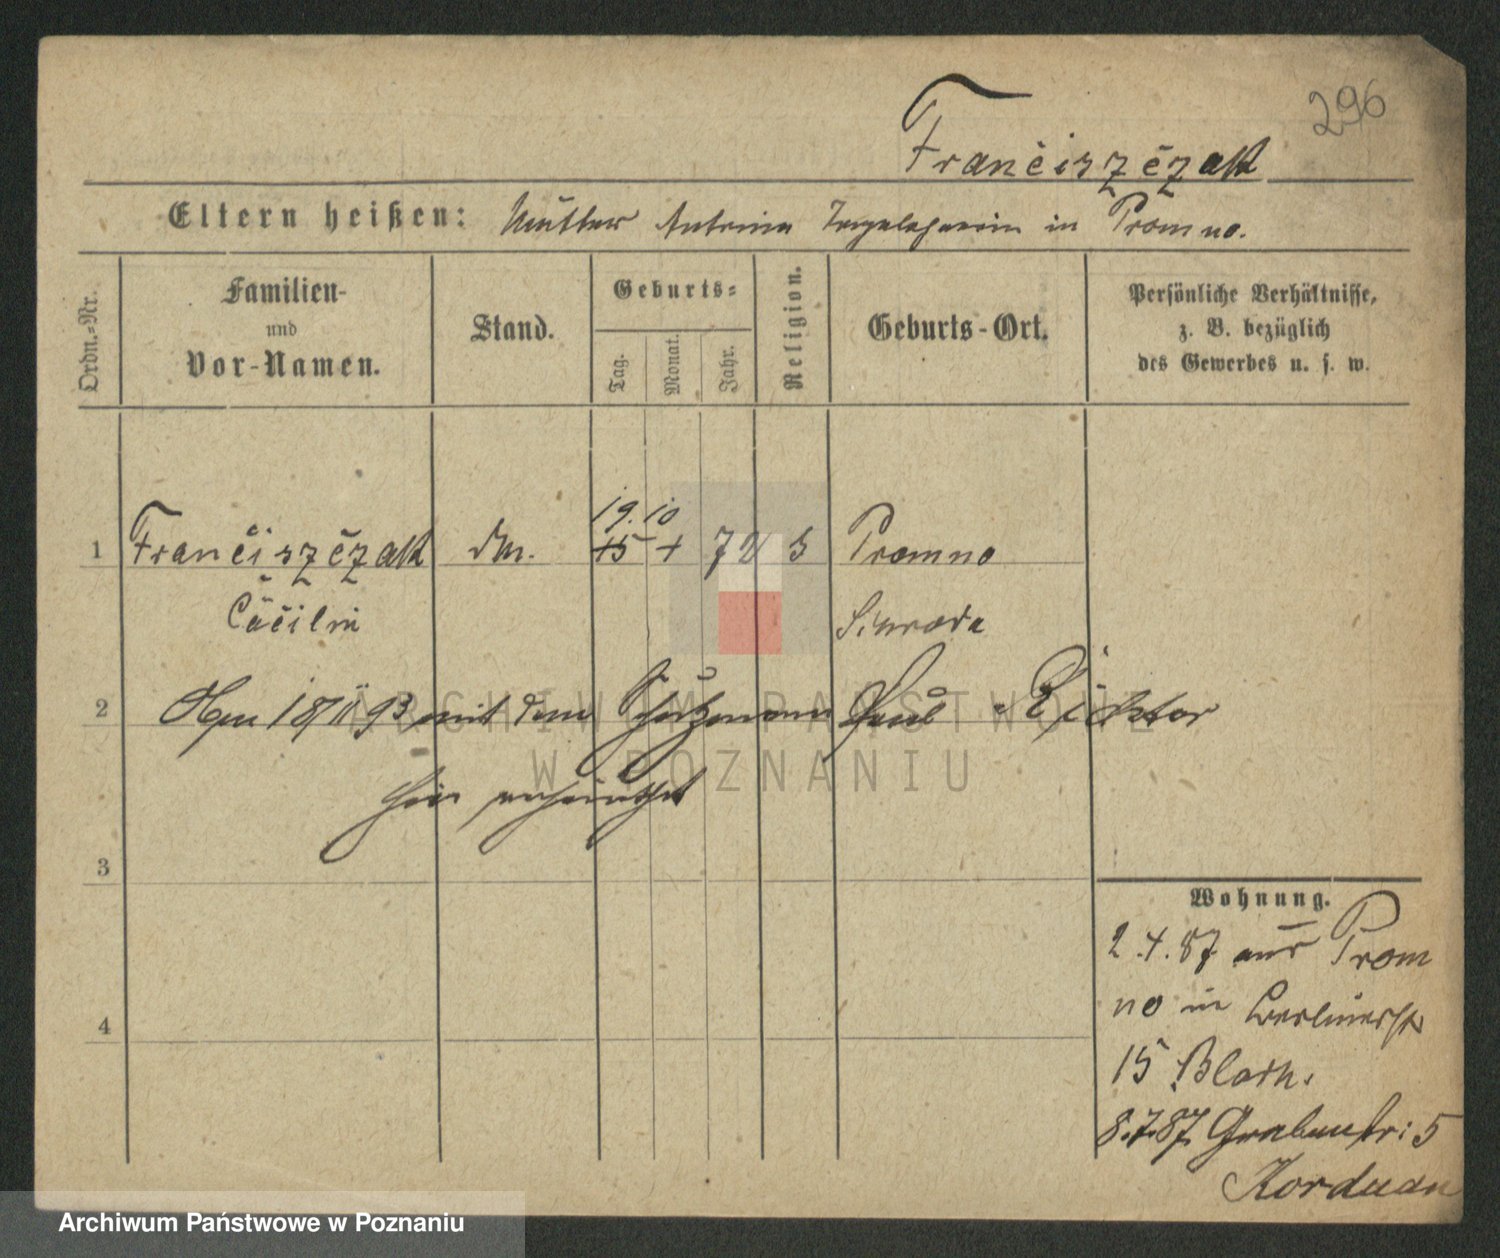 296
Franciszczak
Eltern heißen: Mutter in Promno.
Ordn.-Nr.
Familien-
und
Vor-Namen.
Stand.
Geburts-
Tag.
Monat.
Jahr.
Religion.
Geburts-Ort.
Persönliche Verhältnisse,
z. B. bezüglich
des Gewerbes u. s. w.
19. 10
1 Franciszczak 15 4 72 Promno
Schroda
2 18/11 93 mit dem Schutzmann Paul Richter
hier verheirathet
3
Wohnung.
2.4.87 aus Prom
no in Berlinerstr
15
4
8.7.87 Grabenstr: 5
Korduan
ARCHIWUM PAŃSTWOWE
W POZNANIU
Archiwum Państwowe w Poznaniu